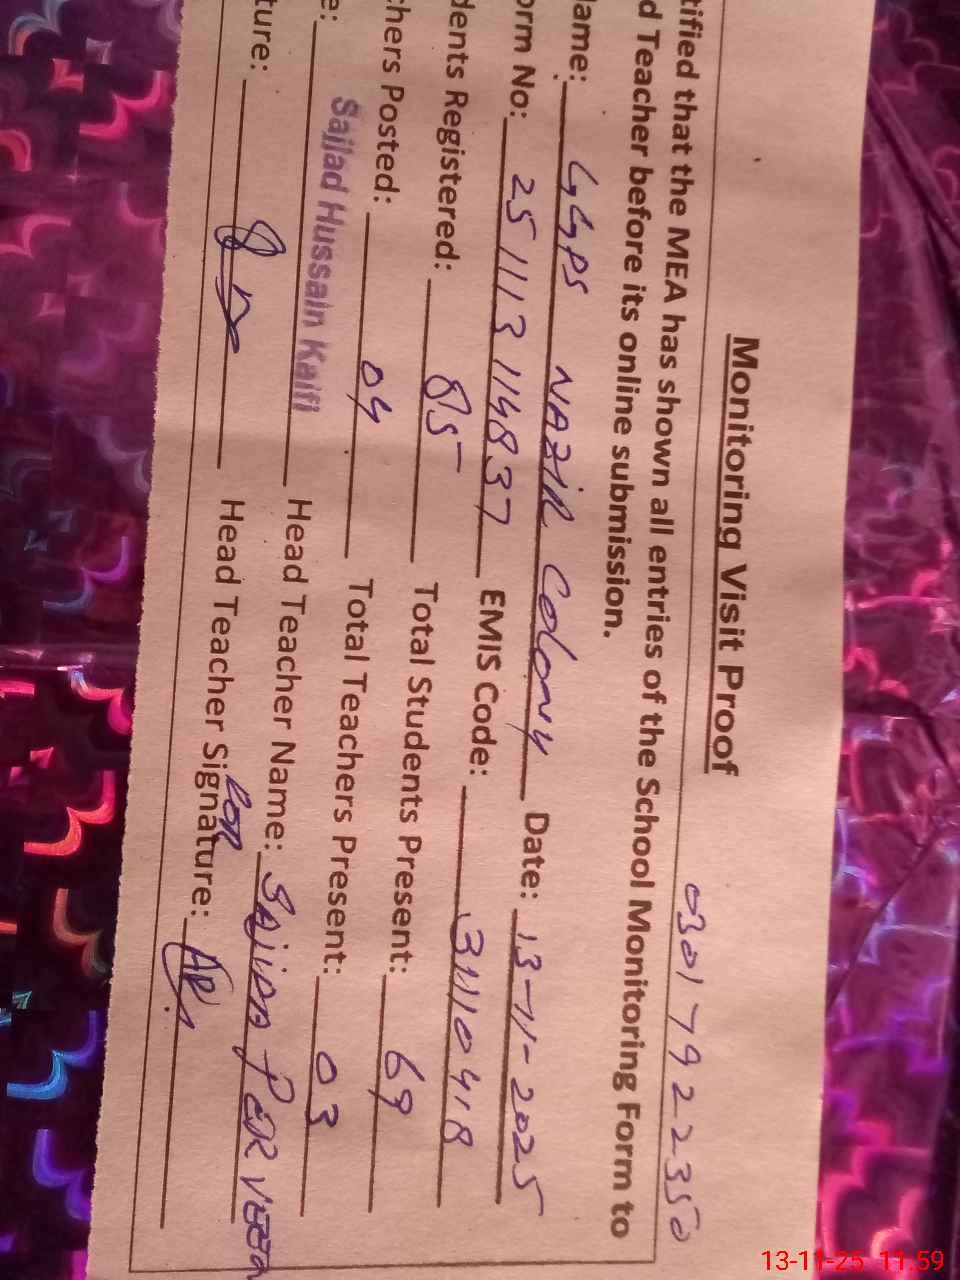 Monitoring Visit Proof
0301 7922350
tified that the MEA has shown all entries of the School Monitoring Form to
d Teacher before its online submission.
lame: GGPS NAZIR Colony Date: 13-11-2025
orm No: 25 1113 114837 EMIS Code: 31110418
dents Registered: 85 Total Students Present: 69
chers Posted: 04 Total Teachers Present: 03
e: Sajjad Hussain Kaifi Head Teacher Name: SAJIDA PERVEEN
ture: Head Teacher Signature:
13-11-25 11:59